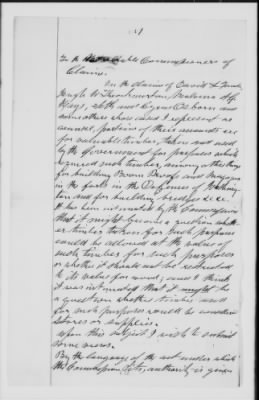 To the Commissioners of
Claims.
In the claims of David L.
Hugh W. Throckmorton, Malvina A. G.
Hays, and Cyrus Osborn and
some others whose cases I represent as
counsel, portions of their amounts are
for valuable timber, taken and used
by the Government for purposes which
required such timber, among other things
for building Bomb Proofs and Magazines
in the forts in the Defences of Washing-
ton and for building bridges &c &c.
It has been intimated by the Commissioners
that it might become a question wheth-
er timber taken for such purposes
could be allowed at the value of
such timber for such purposes
or whether it should not be reduced
to its value for wood; and I think
it was intimated that it might be
a question whether timber used
for such purposes could be considered
stores or supplies.
Upon this subject I wish to submit
some views.
By the language of the act under which
the Commission sits, authority is given